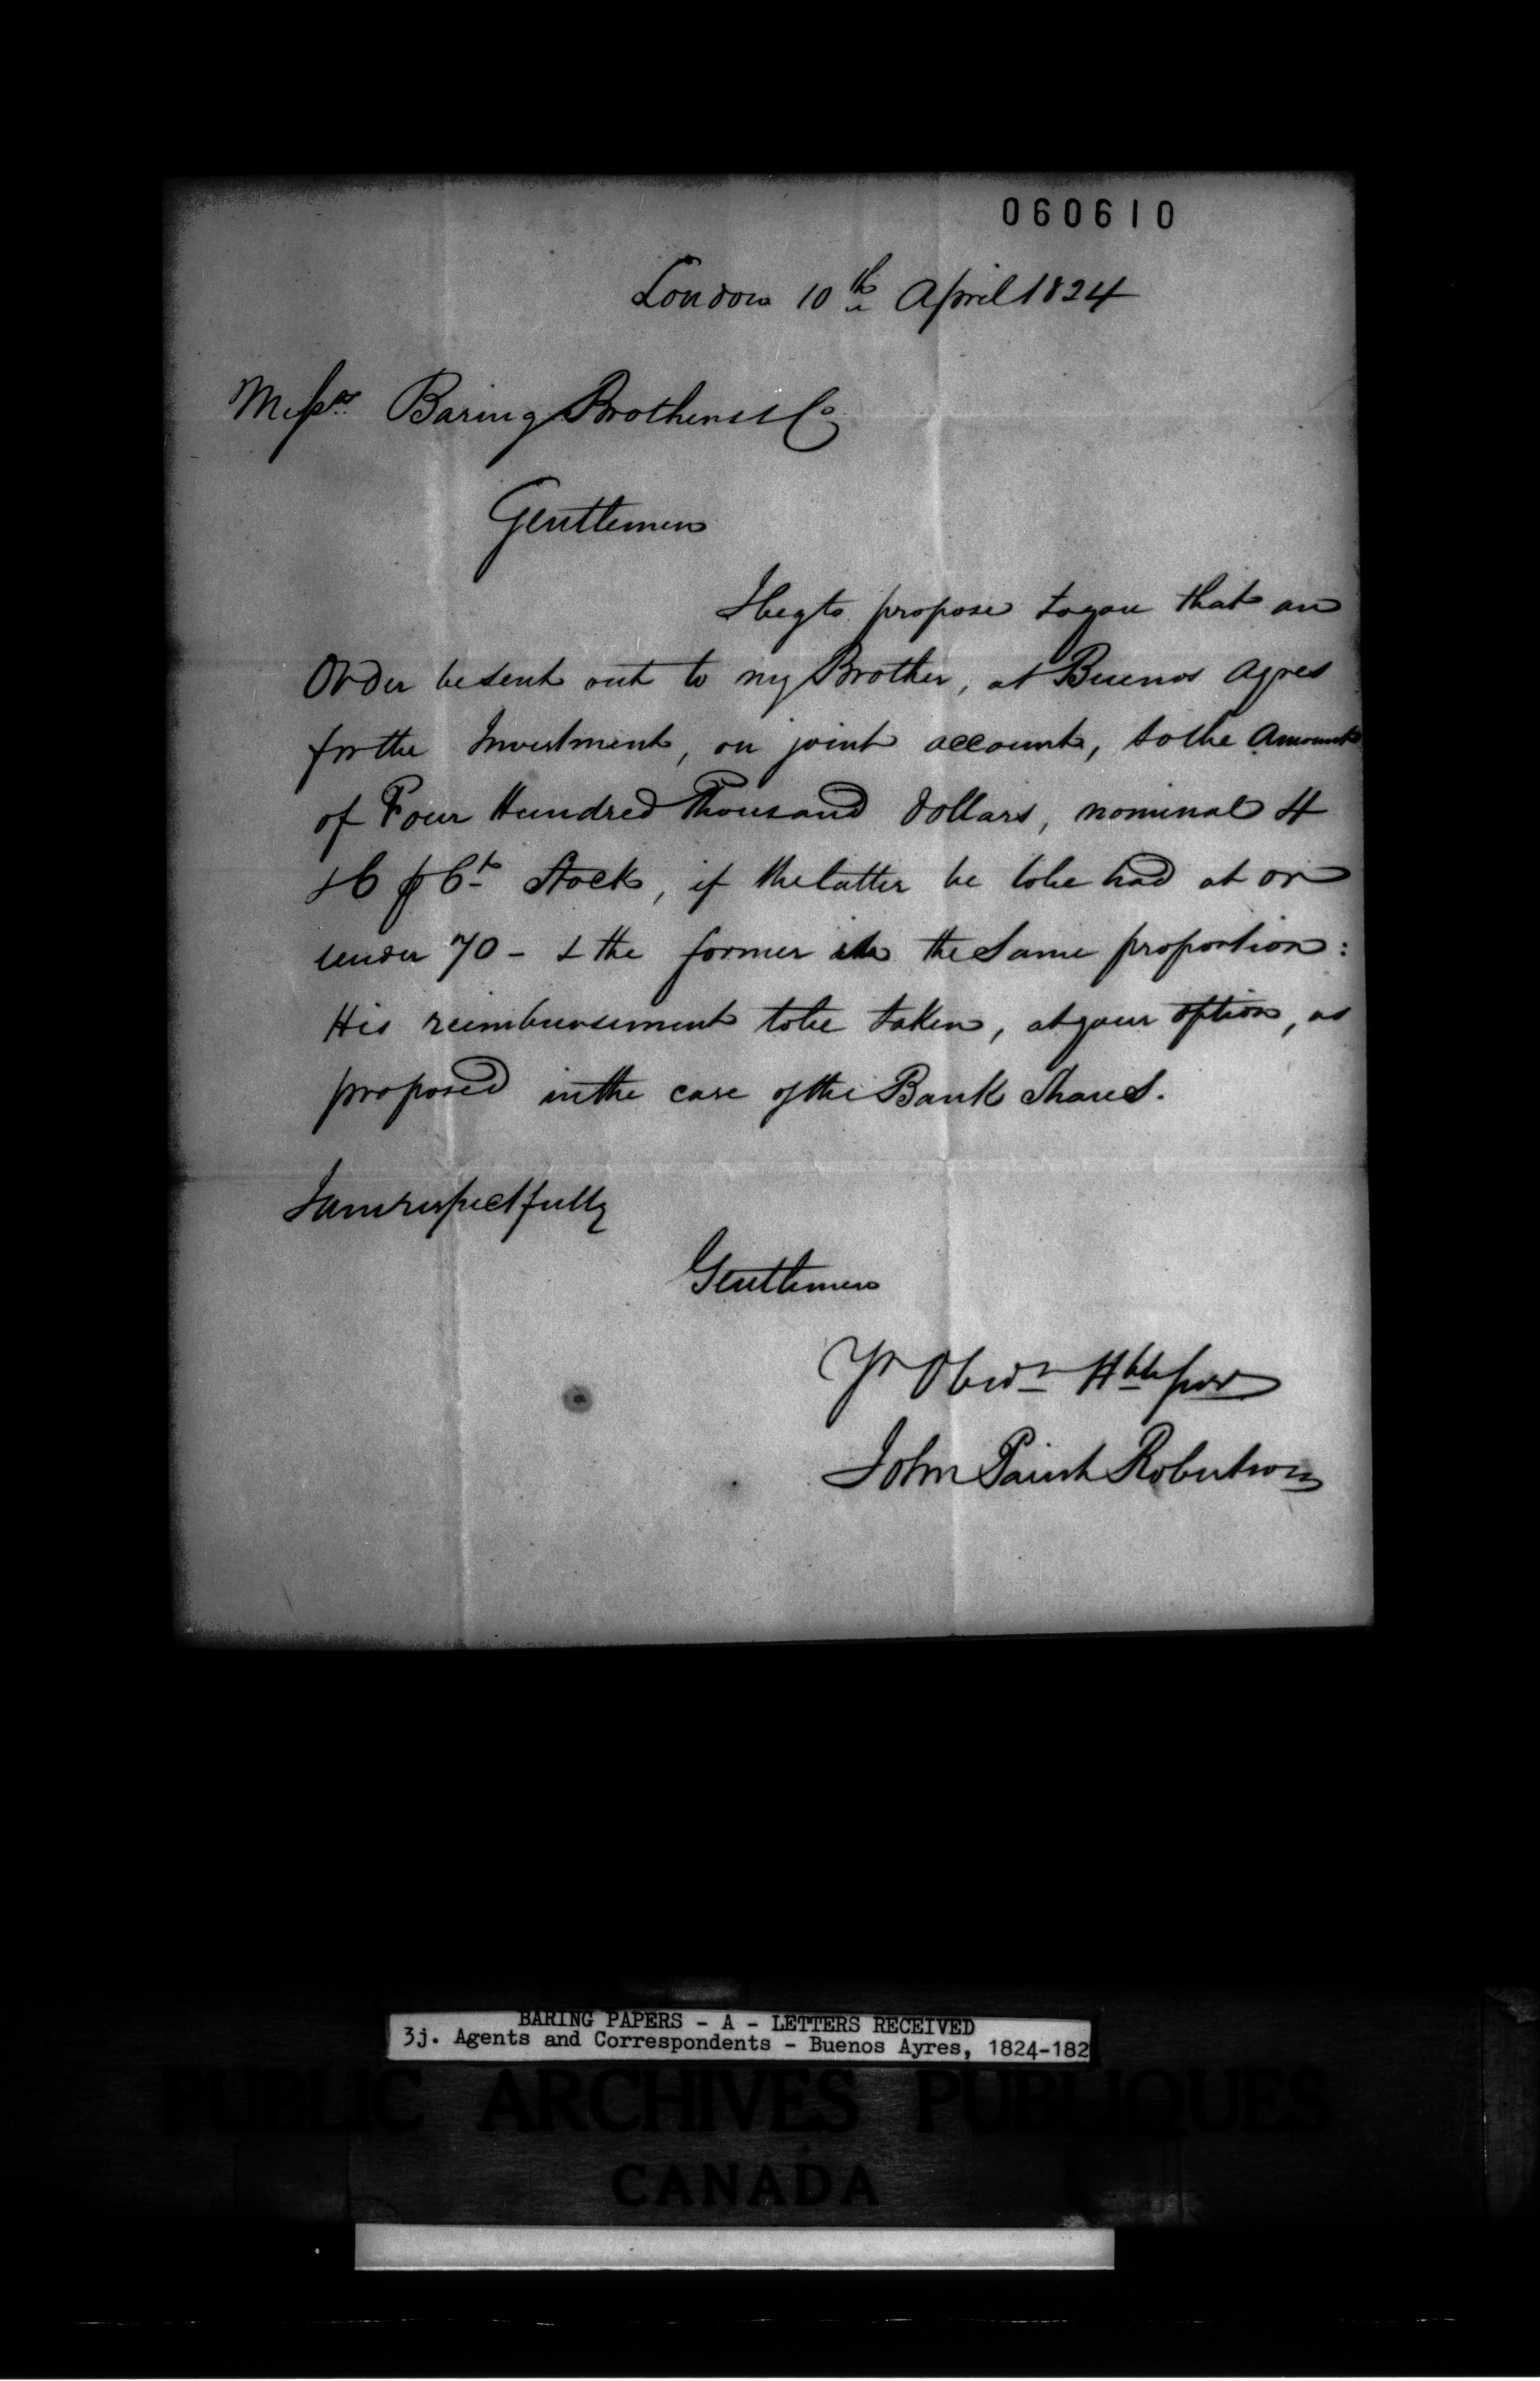 060610
London 10th April 1824
Messrs Baring Brothers & Co
Gentlemen
I beg to propose to you that an
Order be sent out to my Brother, at Buenos Ayres
for the Investment, on joint account, to the Amount
of Four Hundred Thousand dollars, nominal 4
& 6 p Ct Stock, if the latter be to be had at or
under 70 - & the former in the same proportion:
His reimbursement to be taken, at your option, as
proposed in the case of the Bank Shares.
I am respectfully
Gentlemen
Yr Obedt Hble Servt
John Parish Robertson
BARING PAPERS - A - LETTERS RECEIVED
3j. Agents and Correspondents - Buenos Ayres, 1824-182
PUBLIC ARCHIVES PUBLIQUES
CANADA